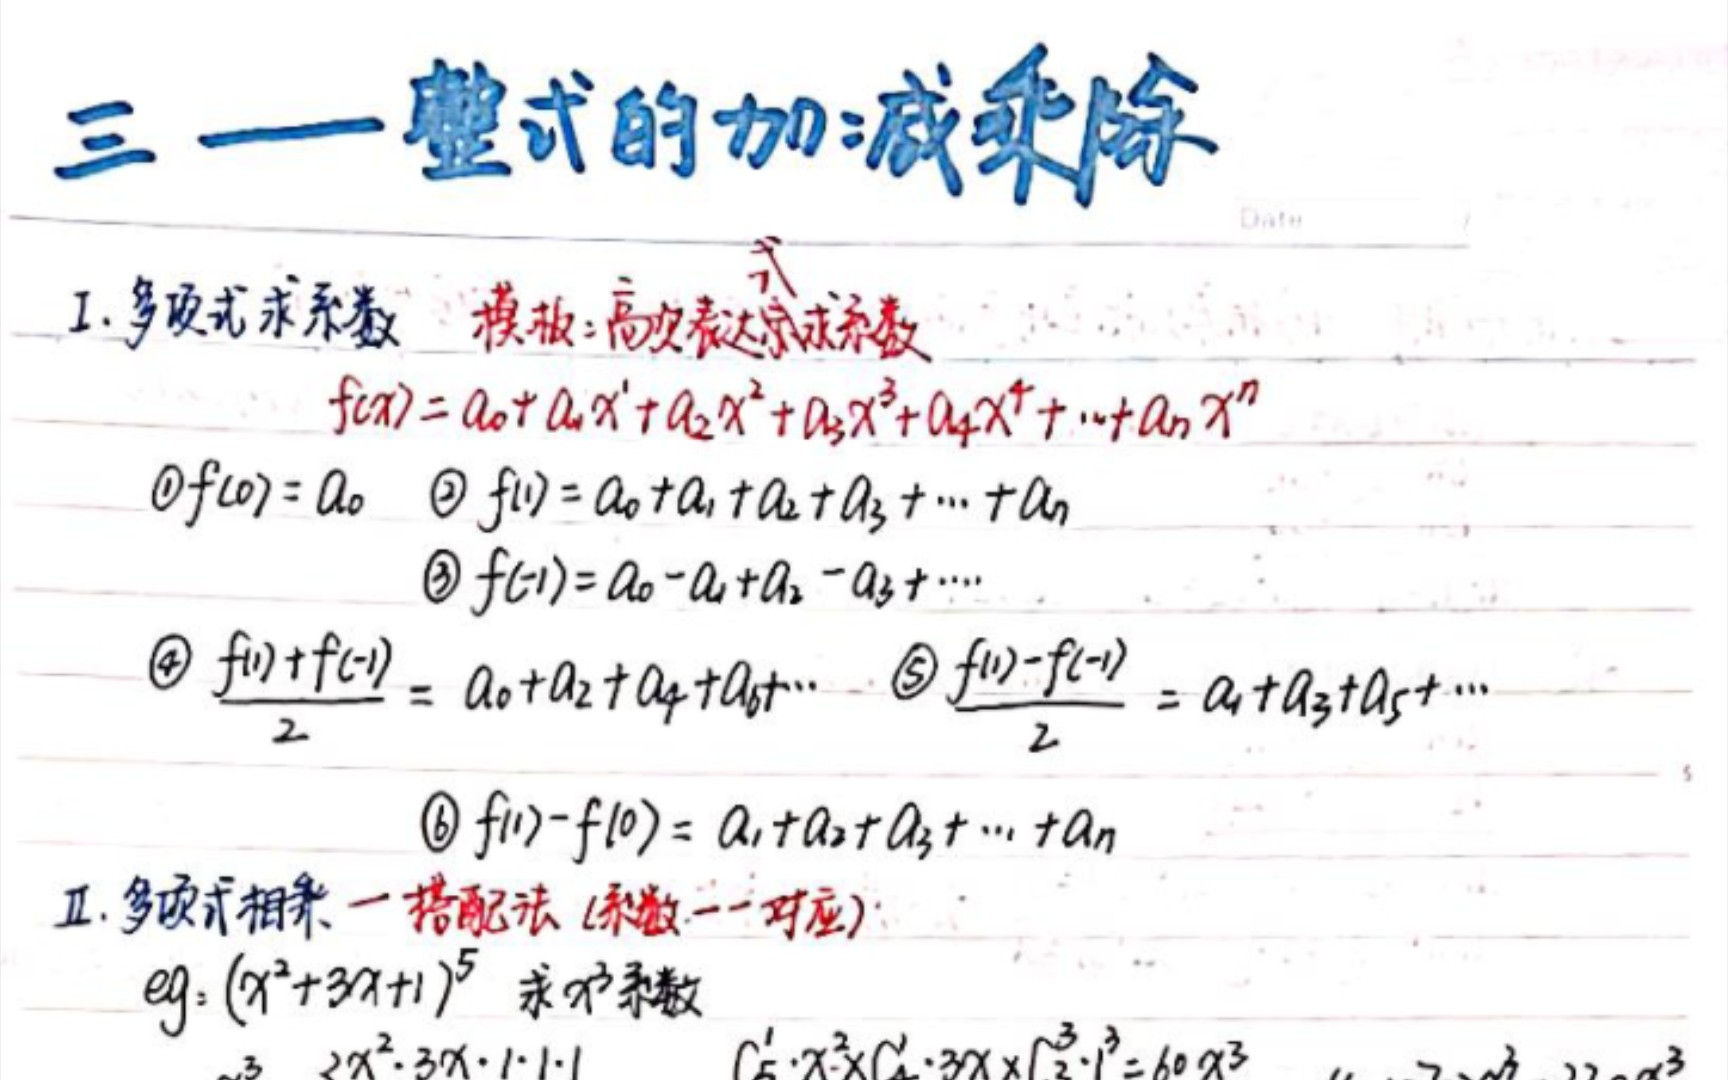 三 — 整式的加减乘除
Date
I. 多项式求系数 模板:高次表达式求系数
f(x) = a₀ + a₁x¹ + a₂x² + a₃x³ + a₄x⁴ + … + aₙxⁿ
① f(0) = a₀ ② f(1) = a₀ + a₁ + a₂ + a₃ + … + aₙ
③ f(-1) = a₀ - a₁ + a₂ - a₃ + ….
④ (f(1)+f(-1))/2 = a₀ + a₂ + a₄ + a₆ + … ⑤ (f(1)-f(-1))/2 = a₁ + a₃ + a₅ + …
⑥ f(1) - f(0) = a₁ + a₂ + a₃ + … + aₙ
II. 多项式相乘 — 搭配法 (系数一一对应)
eg: (x² + 3x + 1)⁵ 求x³系数
x²·3x·1·1·1 C₅¹·x²×C₄¹·3x×C₃³·1³ = 60x³